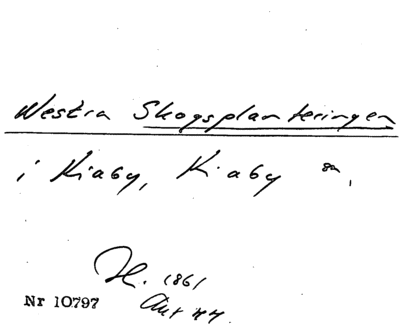 Westra Skogsplanteringen
i Kiaby, Kiaby sn,
H. 1861
Nr 10797